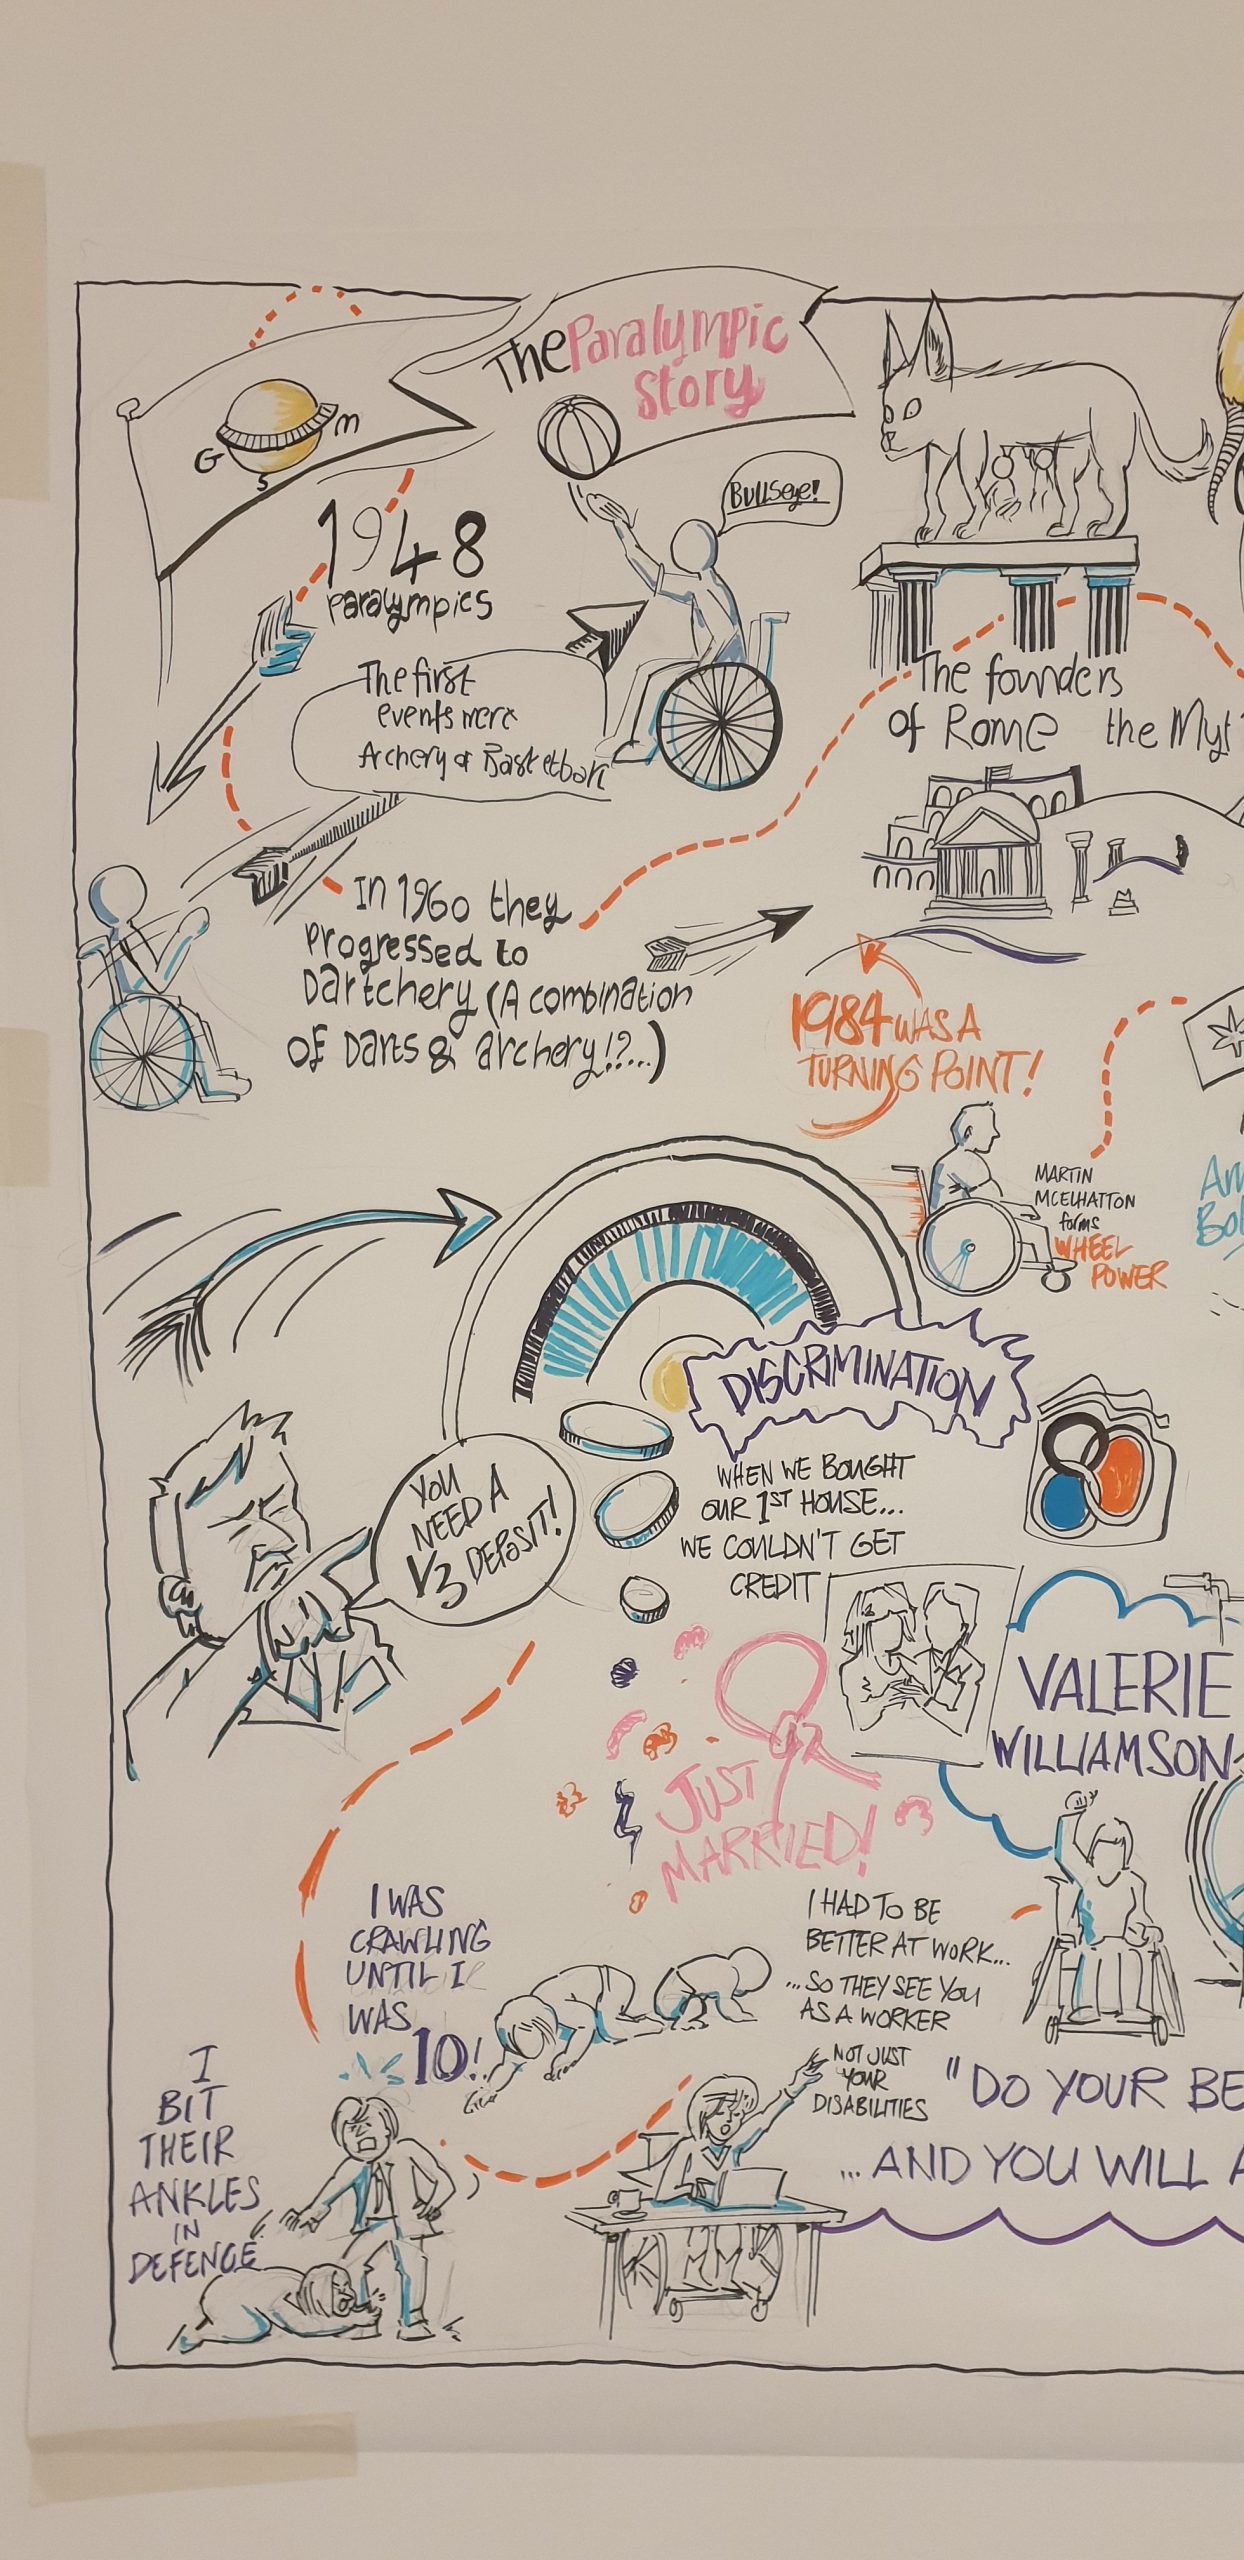 The Paralympic
Story
G M
S
Bullseye!
1948
Paralympics
The first
events were
Archery & Basketball
The founders
of Rome the Myt
In 1960 they
Progressed to
Dartchery (A combination
of Darts & archery!?...)
1984 WAS A
TURNING POINT!
MARTIN
MCELHATTON
forms
WHEEL
POWER
DISCRIMINATION
WHEN WE BOUGHT
OUR 1ST HOUSE...
WE COULDN'T GET
CREDIT
YOU
NEED A
1/3 DEPOSIT!
VALERIE
WILLIAMSON
JUST
MARRIED!
I WAS
CRAWLING
UNTIL I
WAS 10!
I HAD TO BE
BETTER AT WORK...
...SO THEY SEE YOU
AS A WORKER
NOT JUST
YOUR
DISABILITIES
I
BIT
THEIR
ANKLES
IN
DEFENCE
"DO YOUR BE
...AND YOU WILL A